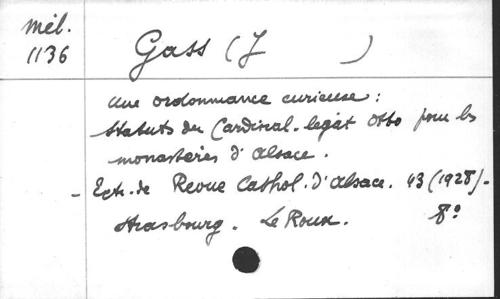 Mél.
1136
Gass (J )
Une ordonnance curieuse :
Statuts du Cardinal-légat Otto pour les
monastères d'Alsace.
- Extr. de Revue Cathol. d'Alsace. 43 (1928) -
Strasbourg. Le Roux. 8°